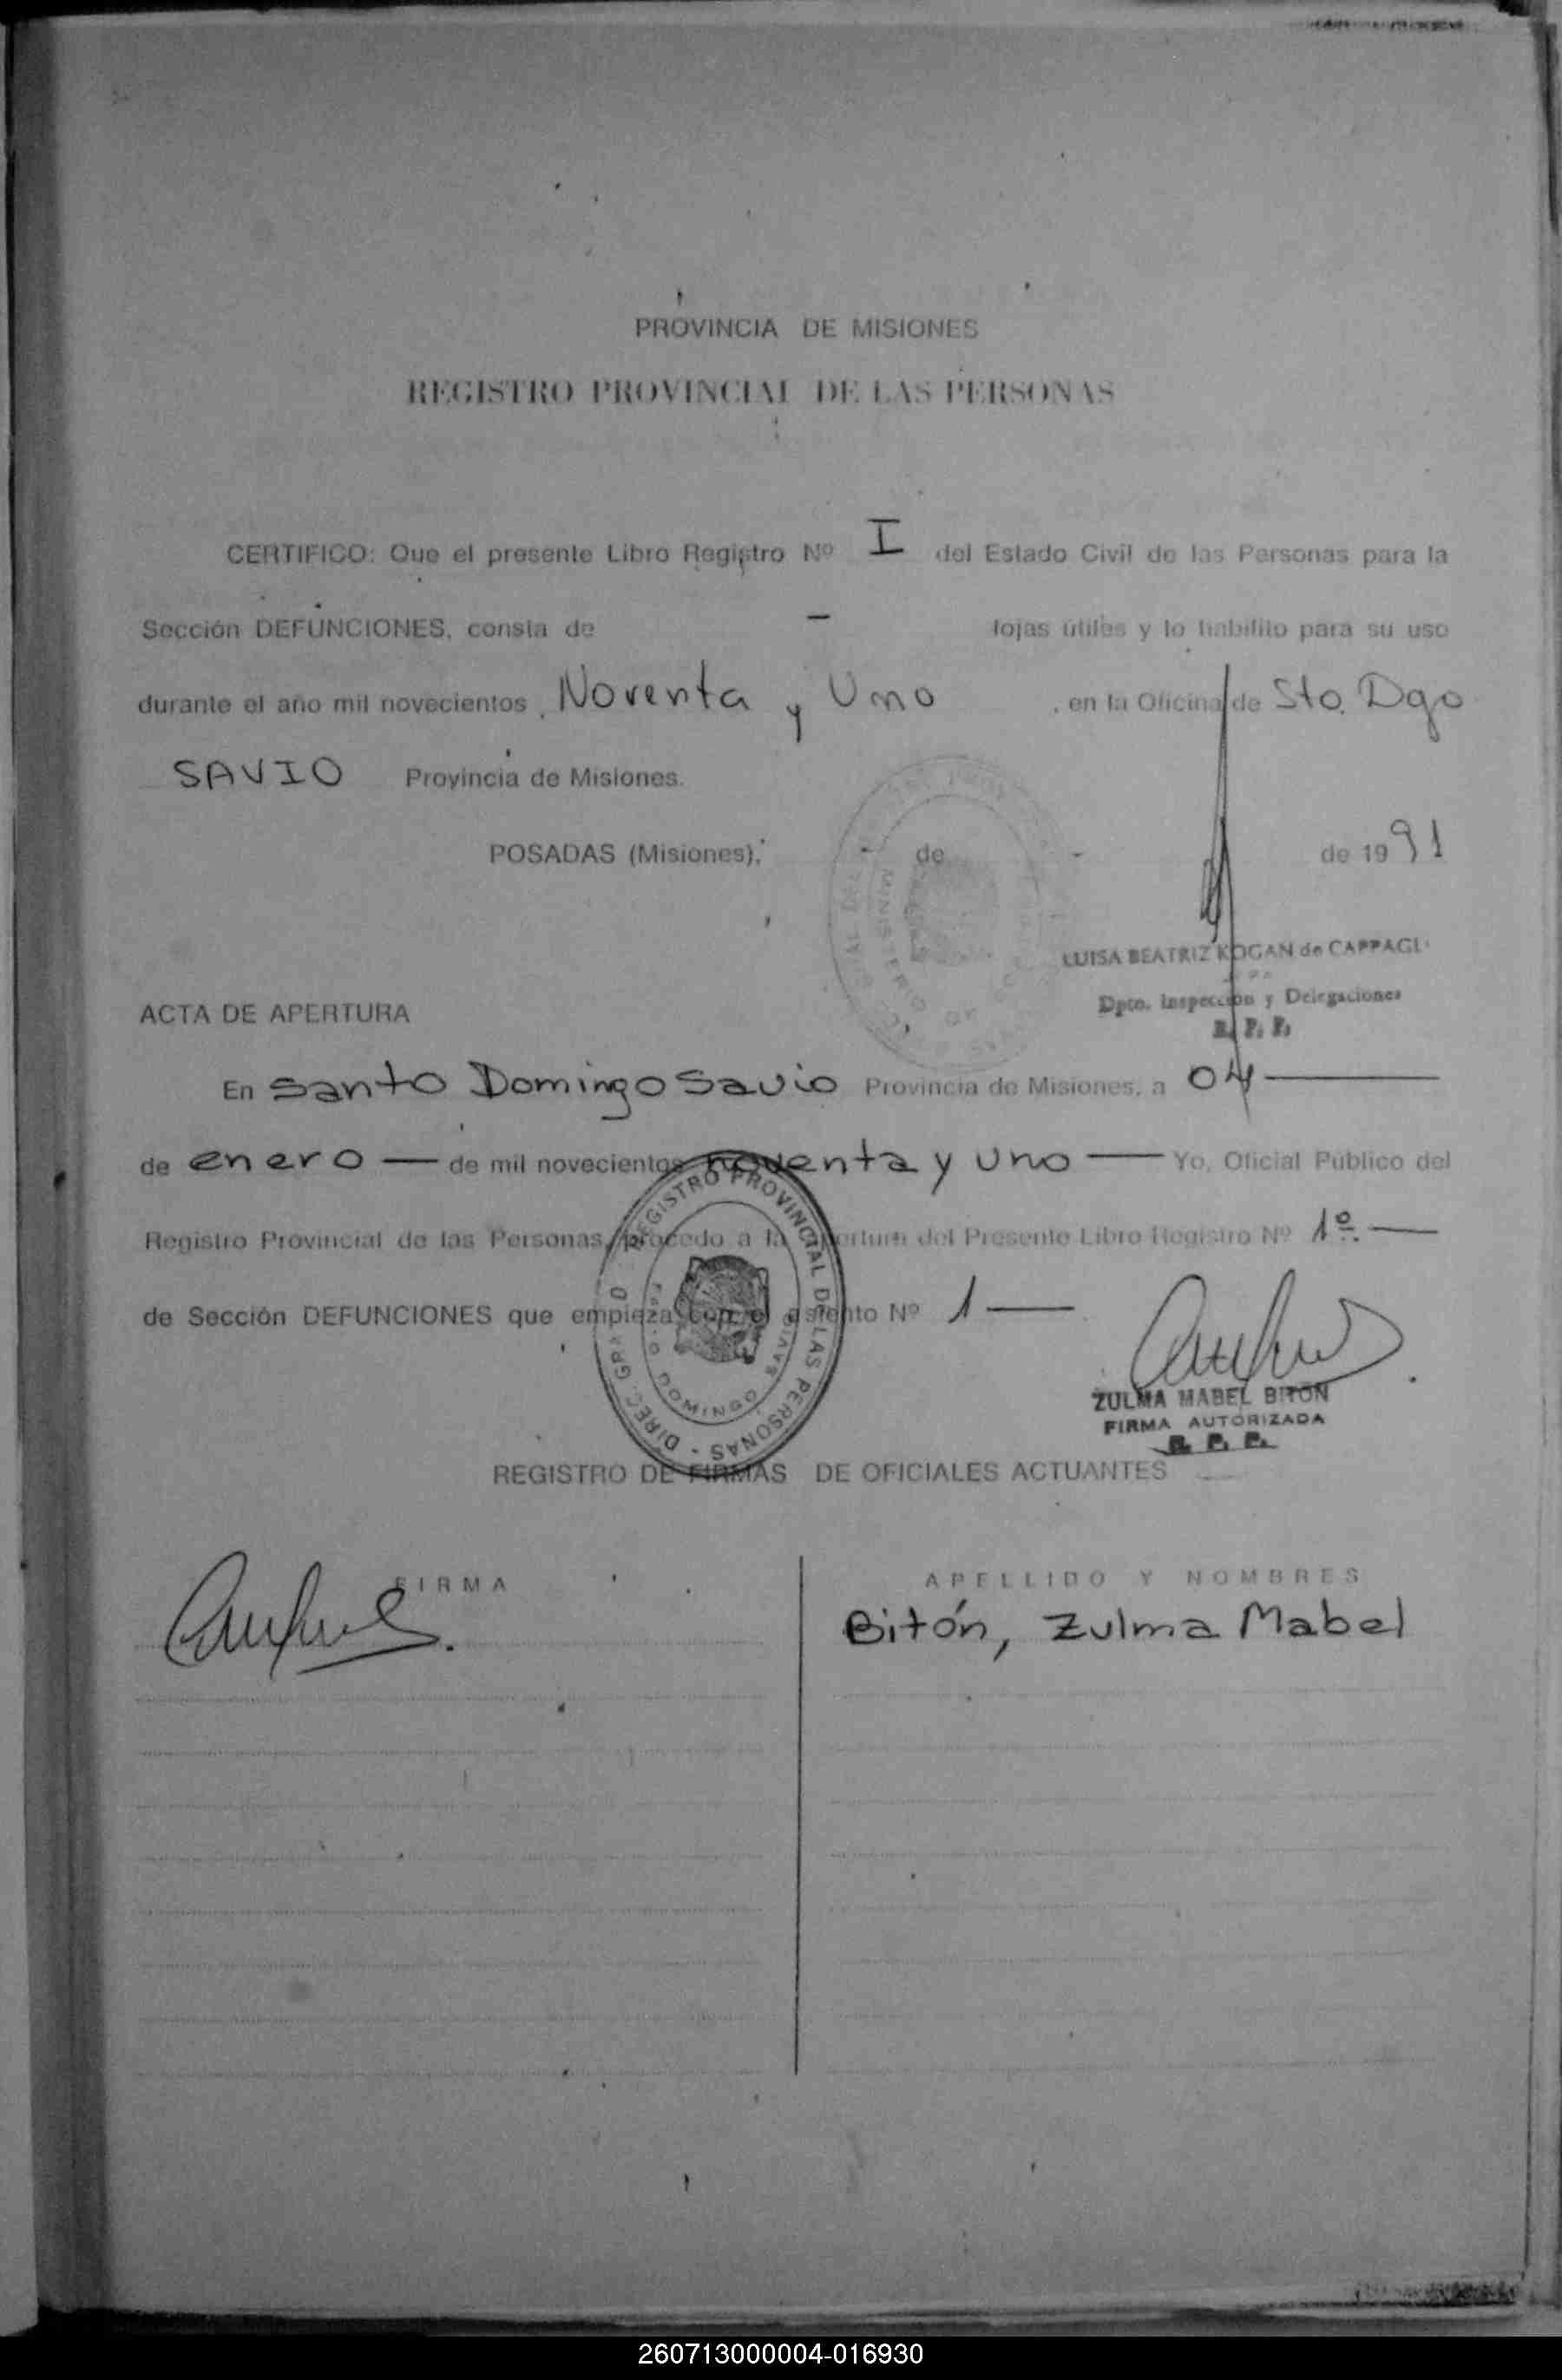 PROVINCIA DE MISIONES
REGISTRO PROVINCIAL DE LAS PERSONAS
CERTIFICO: Que el presente Libro Registro Nº I del Estado Civil de las Personas para la
Sección DEFUNCIONES, consta de — fojas útiles y lo habilito para su uso
durante el año mil novecientos Noventa y Uno, en la Oficina de Sto. Dgo
SAVIO Provincia de Misiones.
POSADAS (Misiones), - de - de 1991
LUISA BEATRIZ KOGAN de CAPPAGL
Dpto. Inspección y Delegaciones
R. P. P.
ACTA DE APERTURA
En Santo Domingo Savio Provincia de Misiones, a 04 —
de enero — de mil novecientos noventa y uno — Yo, Oficial Público del
Registro Provincial de las Personas, procedo a la apertura del Presente Libro Registro Nº 1º —
de Sección DEFUNCIONES que empieza con el asiento Nº 1 —
DIREC. GRAL. D REGISTRO PROVINCIAL D LAS PERSONAS -
DOMINGO SAVIO
ZULMA MABEL BITON
FIRMA AUTORIZADA
R. P. P.
REGISTRO DE FIRMAS DE OFICIALES ACTUANTES
FIRMA APELLIDO Y NOMBRES
Bitón, Zulma Mabel
260713000004-016930